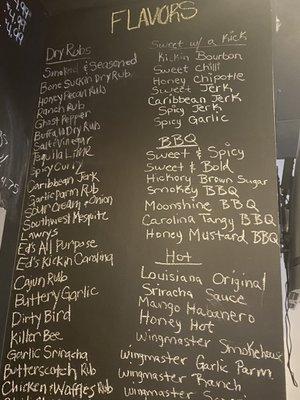 FLAVORS
Dry Rubs
Smoked & Seasoned
Bone Suckin Dry Rub
Honey Pecan Rub
Ranch Rub
Ghost Pepper
Buffalo Dry Rub
Salt & Vinegar
Tequila Lime
Spicy Curry
Caribbean Jerk
Garlic Parm Rub
Sour Cream & Onion
Southwest Mesquite
Lawrys
Ed's All Purpose
Ed's Kickin Carolina
Cajun Rub
Buttery Garlic
Dirty Bird
Killer Bee
Garlic Sriracha
Butterscotch Rub
Chicken & Waffles Rub
Sweet w/ a Kick
Kickin Bourbon
Sweet Chilli
Honey Chipotle
Sweet Jerk
Caribbean Jerk
Spicy Jerk
Spicy Garlic
BBQ
Sweet & Spicy
Sweet & Bold
Hickory Brown Sugar
Smokey BBQ
Moonshine BBQ
Carolina Tangy BBQ
Honey Mustard BBQ
Hot
Louisiana Original
Sriracha Sauce
Mango Habanero
Honey Hot
Wingmaster Smokehouse
Wingmaster Garlic Parm
Wingmaster Ranch
Wingmaster